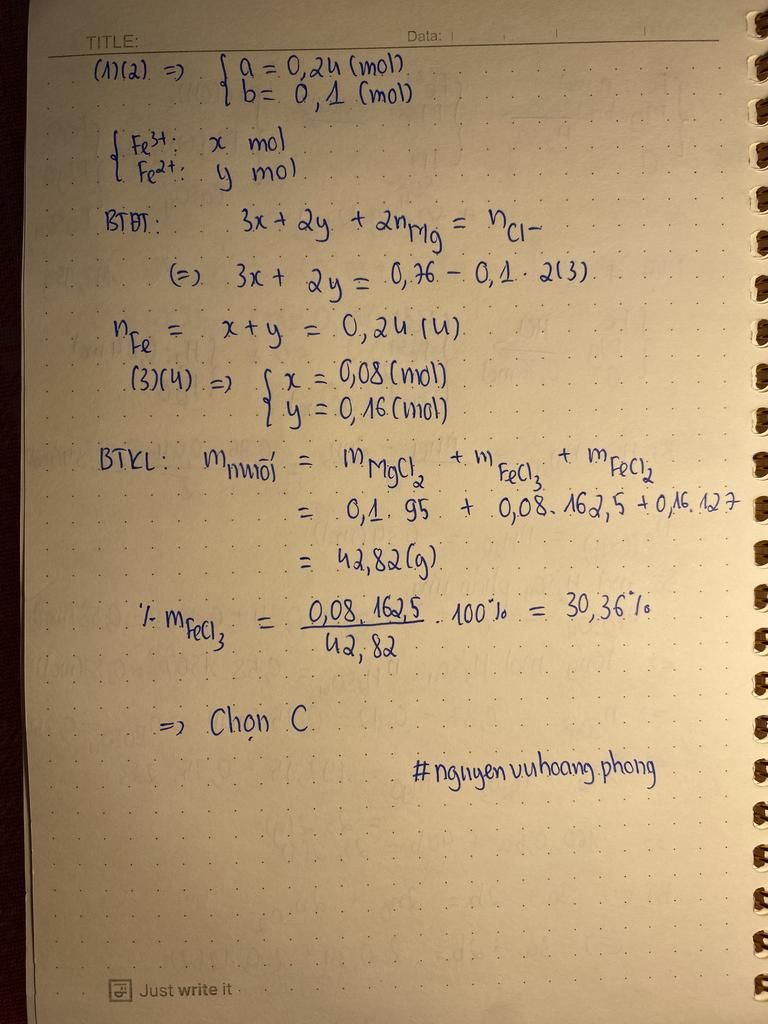 TITLE:
Data:
(1)(2) => { a = 0,24 (mol)
b = 0,1 (mol)
{ Fe³⁺: x mol
Fe²⁺: y mol
BTĐT: 3x + 2y + 2n_Mg = n_Cl-
(=) 3x + 2y = 0,76 - 0,1 . 2(3)
n_Fe = x + y = 0,24 (4)
(3)(4) => { x = 0,08 (mol)
y = 0,16 (mol)
BTKL: m_muối = m_MgCl₂ + m_FeCl₃ + m_FeCl₂
= 0,1 . 95 + 0,08 . 162,5 + 0,16 . 127
= 42,82 (g)
% m_FeCl₃ = 0,08 . 162,5 / 42,82 . 100% = 30,36%
=> Chọn C
#nguyenvuhoang.phong
Just write it